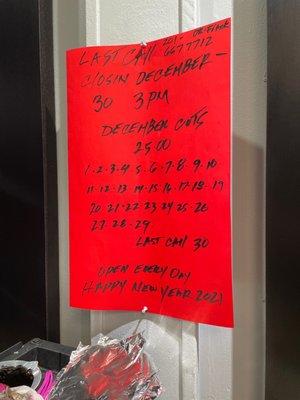 LAST CALL 201- OR-FLACK
667 7712
CLOSIN DECEMBER -
30 3 PM
DECEMBER CUTS
25.00
1-2-3-4-5-6-7-8-9-10
11-12-13-14-15-16-17-18-19
20-21-22 23 24 25 26
27-28-29-
LAST CALL 30
OPEN EVERY DAY
HAPPY NEW YEAR 2021